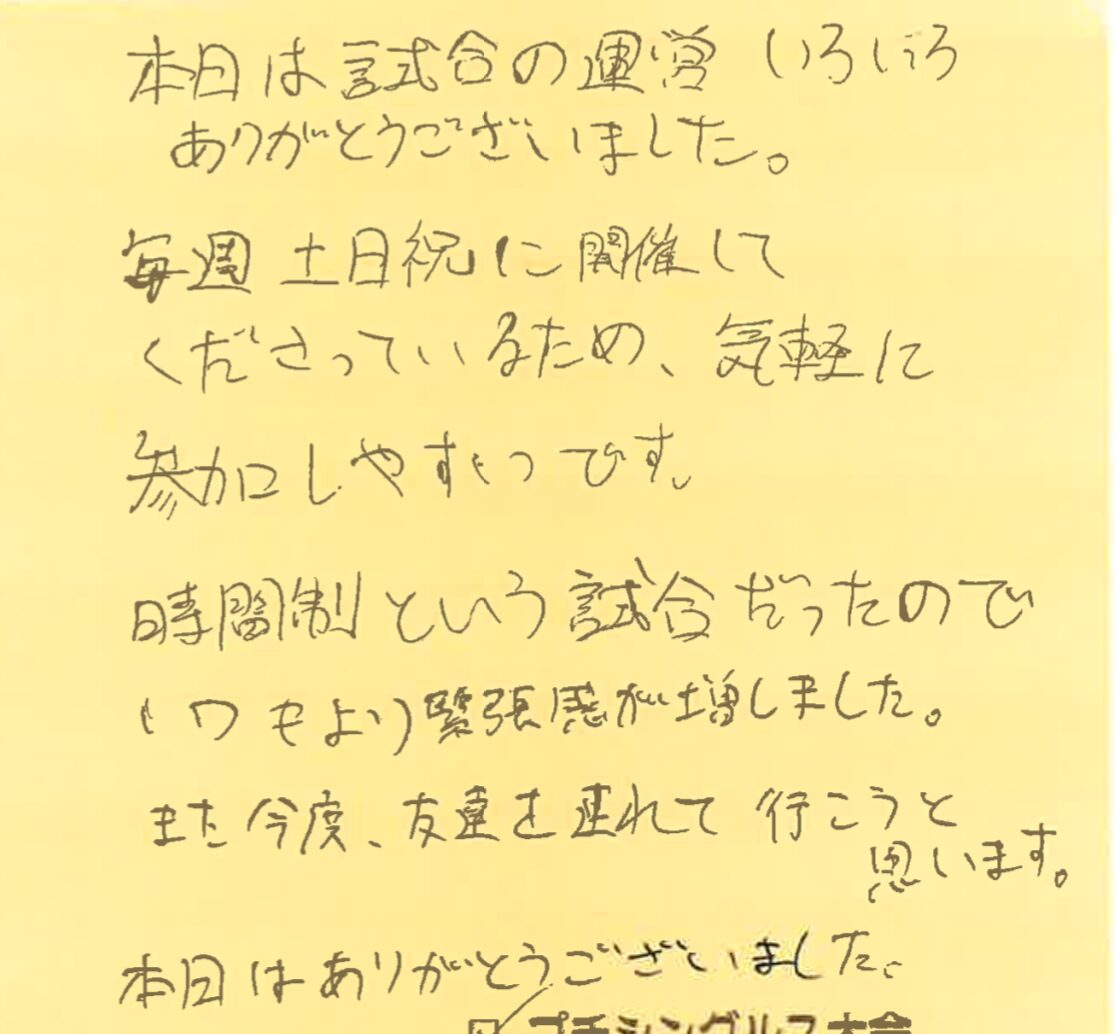 本日は試合の運営 いろいろ
ありがとうございました。
毎週 土日祝に開催して
くださっているため、気軽に
参加しやすいです。
時間制という試合だったので
いつもより緊張感が増しました。
また今度、友達を連れて 行こうと
思います。
本日はありがとうございました。
プチシングルス大会